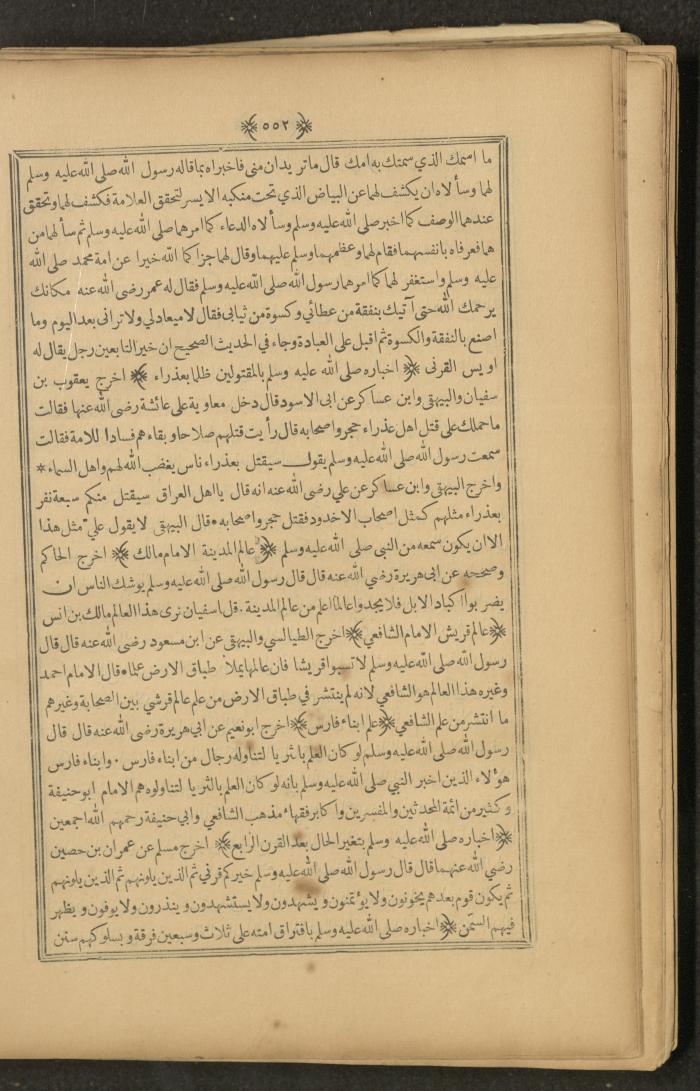 ﴿ ٥٥٢ ﴾
ما اسمك الذي سمتك به امك قال ما تريدان منى فاخبراه بما قاله رسول الله صلى الله عليه وسلم
لهما وسألاه ان يكشف لهما عن البياض الذي تحت منكبه الايسر لتحقق العلامة فكشف لهما وتحقق
عندهما الوصف كما اخبر صلى الله عليه وسلم وسألاه الدعاء كما امرهما صلى الله عليه وسلم ثم سألهما من
هما فعرفاه بانفسهما فقام لهما وعظمهما وسلم عليهما وقال لهما جزاكما الله خيرا عن امة محمد صلى الله
عليه وسلم واستغفر لهما كما امرهما رسول الله صلى الله عليه وسلم فقال له عمر رضى الله عنه مكانك
يرحمك الله حتى آتيك بنفقة من عطائي وكسوة من ثيابى فقال لا ميعاد لي ولا ترانى بعد اليوم وما
اصنع بالنفقة والكسوة ثم اقبل على العبادة وجاء في الحديث الصحيح ان خير التابعين رجل يقال له
اويس القرنى ﴿ اخباره صلى الله عليه وسلم بالمقتولين ظلما بعذراء ﴾ اخرج يعقوب بن
سفيان والبيهقى وابن عساكر عن ابى الاسود قال دخل معاوية على عائشة رضى الله عنها فقالت
ما حملك على قتل اهل عذراء حجر واصحابه قال رأيت قتلهم صلاحا وبقاءهم فسادا للامة فقالت
سمعت رسول الله صلى الله عليه وسلم يقول سيقتل بعذراء ناس يغضب الله لهم واهل السماء *
واخرج البيهقى وابن عساكر عن علي رضى الله عنه انه قال يا اهل العراق سيقتل منكم سبعة نفر
بعذراء مثلهم كمثل اصحاب الاخدود فقتل حجر واصحابه * قال البيهقى لا يقول علي مثل هذا
الا ان يكون سمعه من النبى صلى الله عليه وسلم ﴿ عالم المدينة الامام مالك ﴾ اخرج الحاكم
وصححه عن ابى هريرة رضي الله عنه قال قال رسول الله صلى الله عليه وسلم يوشك الناس ان
يضربوا اكباد الابل فلا يجدوا عالما اعلم من عالم المدينة . قال سفيان نرى هذا العالم مالك بن انس
﴿ عالم قريش الامام الشافعي ﴾ اخرج الطيالسي والبيهقى عن ابن مسعود رضى الله عنه قال قال
رسول الله صلى الله عليه وسلم لا تسبوا قريشا فان عالمها يملأ طباق الارض علما * قال الامام احمد
وغيره هذا العالم هو الشافعي لانه لم ينتشر في طباق الارض من علم عالم قرشي بين الصحابة وغيرهم
ما انتشر من علم الشافعي ﴿ علم ابناء فارس ﴾ اخرج ابو نعيم عن ابي هريرة رضى الله عنه قال قال
رسول الله صلى الله عليه وسلم لو كان العلم بالثريا لتناوله رجال من ابناء فارس . وابناء فارس
هؤلاء الذين اخبر النبي صلى الله عليه وسلم بانه لو كان العلم بالثريا لتناولوه هم الامام ابو حنيفة
وكثير من ائمة المحدثين والمفسرين واكابر فقهاء مذهب الشافعي وابي حنيفة رحمهم الله اجمعين
﴿ اخباره صلى الله عليه وسلم بتغير الحال بعد القرن الرابع ﴾ اخرج مسلم عن عمران بن حصين
رضي الله عنهما قال قال رسول الله صلى الله عليه وسلم خيركم قرني ثم الذين يلونهم ثم الذين يلونهم
ثم يكون قوم بعدهم يخونون ولا يؤتمنون ويشهدون ولا يستشهدون وينذرون ولا يوفون ويظهر
فيهم السمن ﴿ اخباره صلى الله عليه وسلم بافتراق امته على ثلاث وسبعين فرقة وبسلوكهم سنن